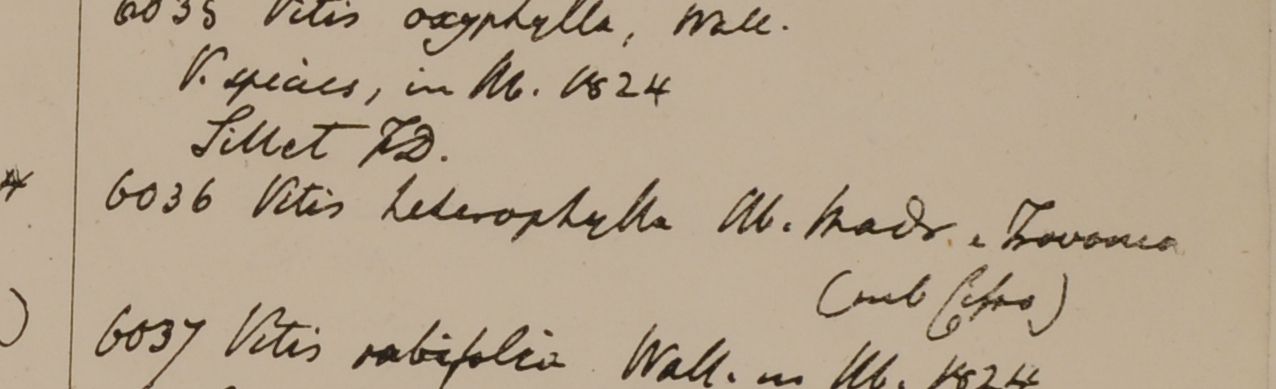 6035 Vitis oxyphylla, Wall.
V. species, in Hb. 1824
Sillet FD.
6036 Vitis heterophylla Hb. Madr. Travanca
(sub Cisso)
6037 Vitis rubifolia Wall. in Hb. 1824